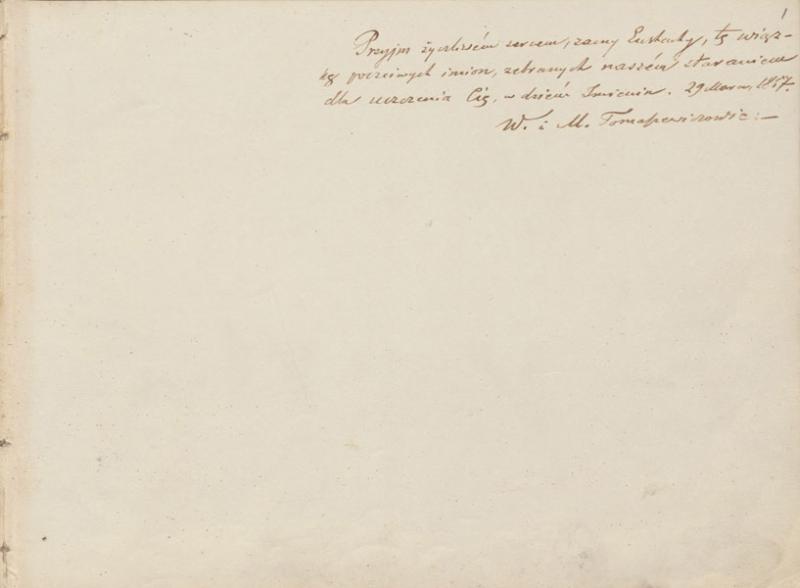 1
Przyjm życzliwém sercem, zacny Eustachy, tę wiąz-
kę poczciwych imion, zebranych naszém staraniem
dla uczczenia Cię, w dzień Imienin. 29 Marca, 1857.
W. i M. Tomaszewiczowie :—